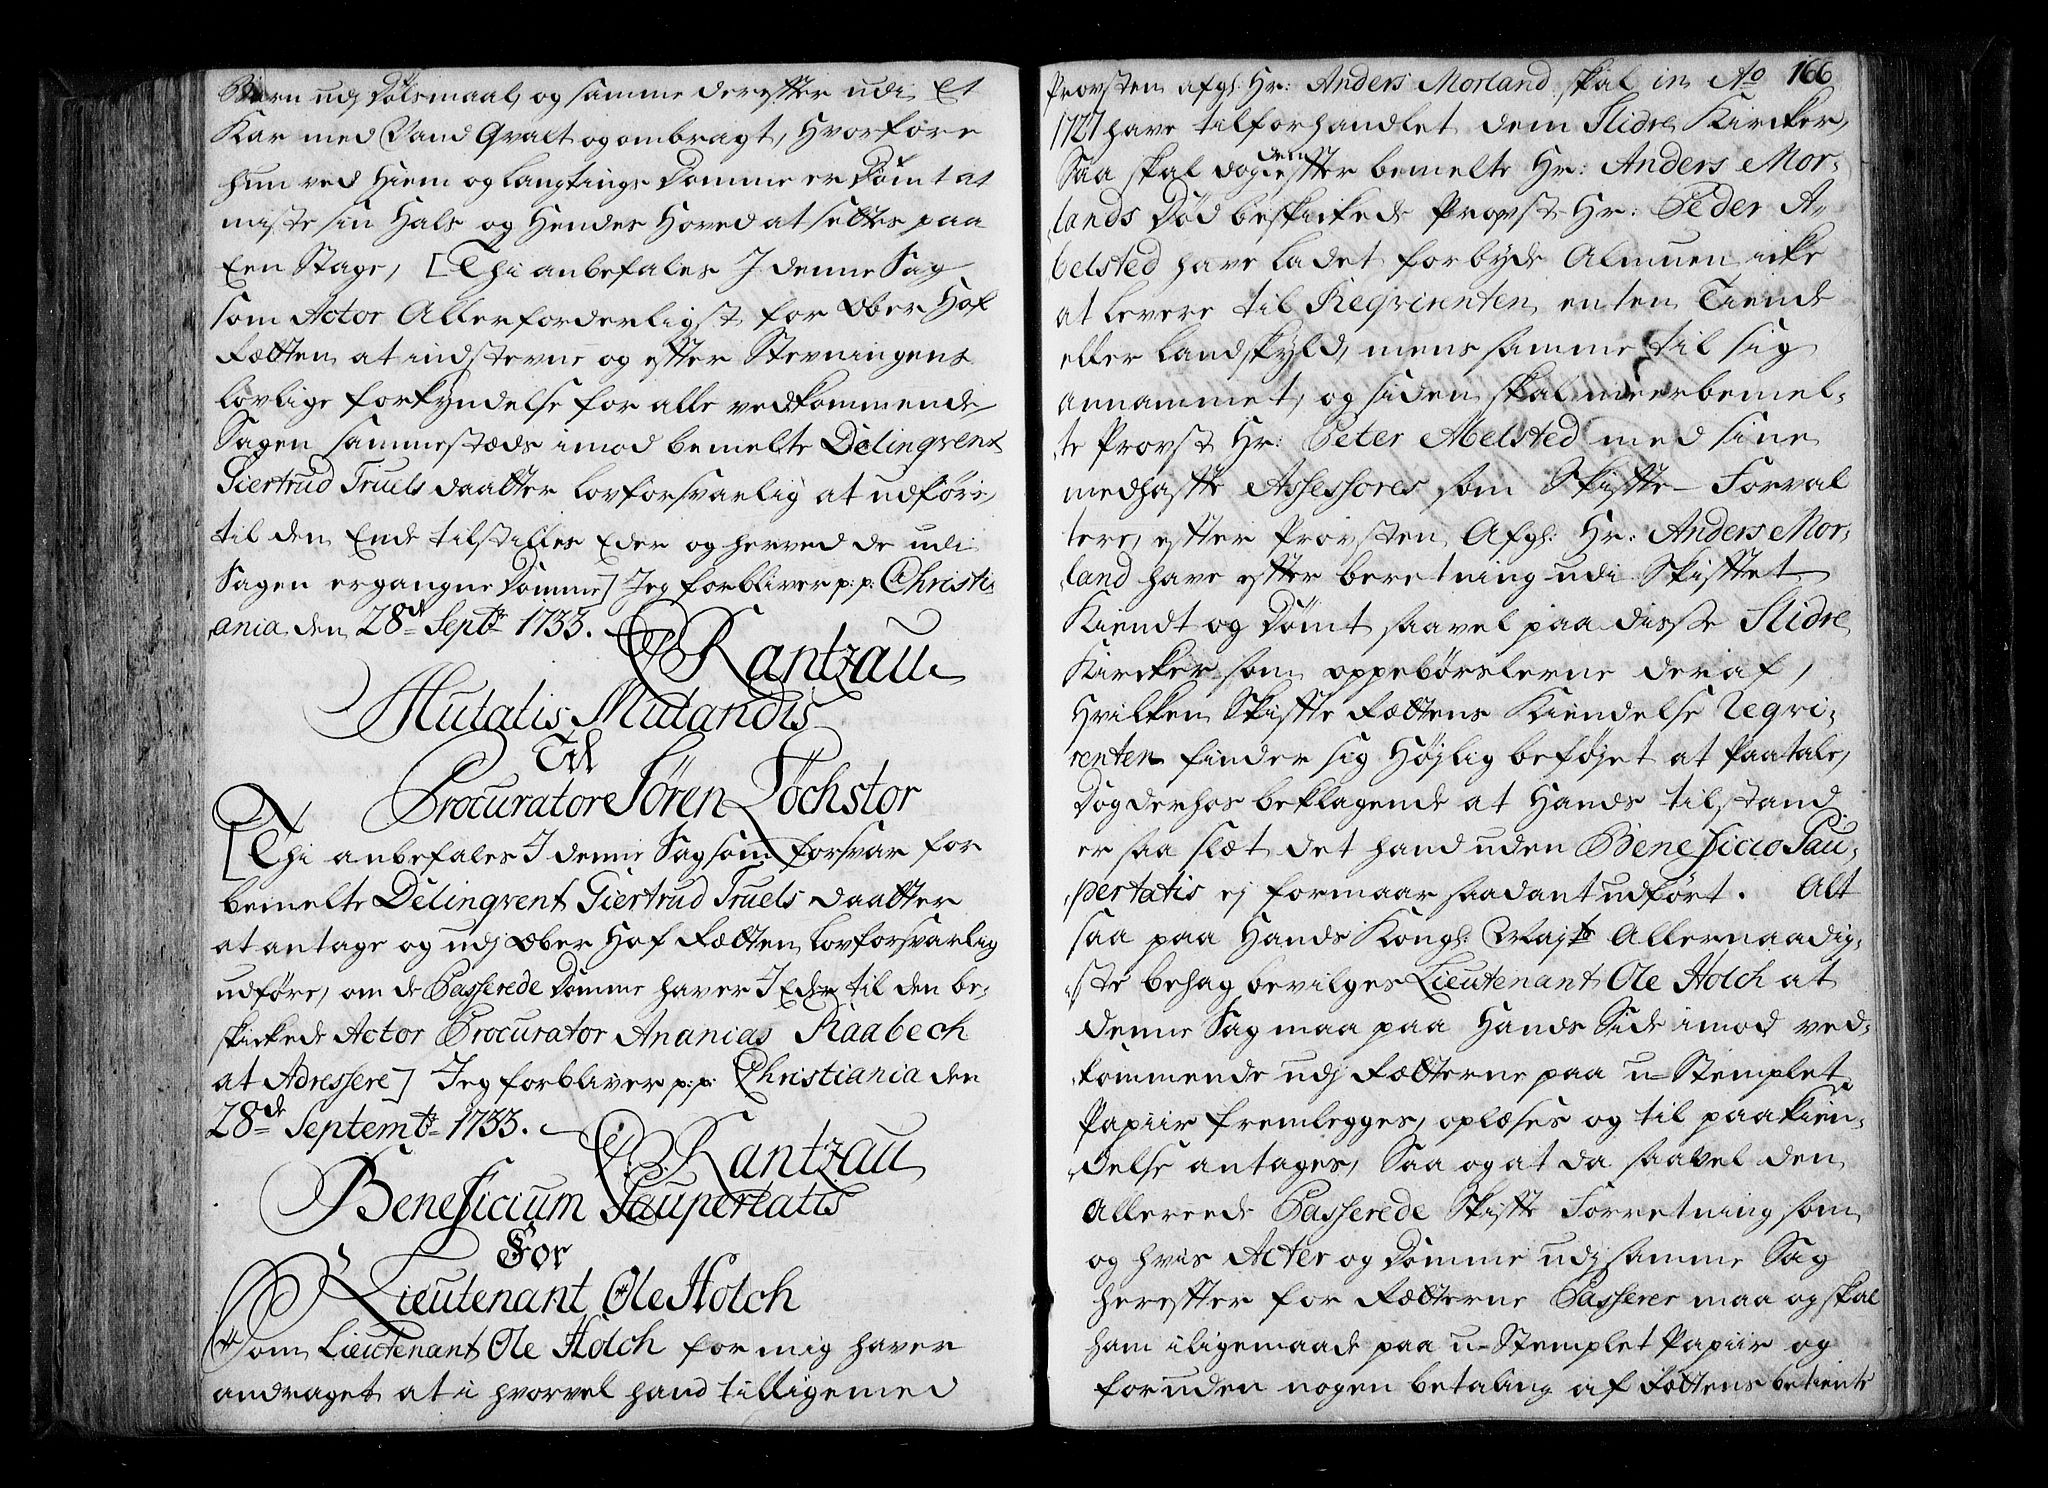 Barn udj Dølsmaal, og samme derefter udi Et
Kar med Vand Qvalt og ombragt, Hvorfore
hun ved Hiem og Langtings Domme er Dømt at
miste sin Hals og Hendes Hoved at settes paa
Een Stage, [Thi anbefales I denne Sag
som Actor Allerforderligst for Ober Hof
Rætten at indstevne og efter Stevningens
lovlige forkyndelse for alle vedkommende
Sagen sammestæds imod bemelte Delinqvent
Giertrud Truels daatter lovforsvarlig at udføre,
til den Ende tilstilles Eder og herved de udi
Sagen ergangne Domme] Jeg forbliver p: p: Christi-
ania den 28de Septbr 1733.
C Rantzau
Mutatis Mutandis
Til
Procurator Sören Löchstor
[Thi anbefales I denne Sag som forsvar for
bemelte Delinqvent Giertrud Truels daatter
at antage og udj Ober Hof Rætten lovforsvarlig
udføre, om de Passerede Domme haver I Eder til den be-
skickede Actor Procurator Ananias Raabech
at Adressere] Jeg forbliver p: p: Christiania den
28de Septembr 1733.
C Rantzau
Beneficium Paupertatis
For
Lieutenant Ole Holch
Som Lieutenant Ole Holch for mig haver
andraget at i hvorvel hand tilligemed
166
Provsten afgl: Hr: Anders Morland skal in Ao
1727 have tilforhandlet dem Slidre Kircker,
Saa skal dog den efter bemelte Hr: Anders Mor-
lands Død beskickede Provst Hr: Peder A-
belsted have ladet forbyde Almuen icke
at levere til Reqvirenten enten Tiende
eller Landskyld, mens samme til sig
annammet, og siden skal meerbemel-
te Provst Hr: Peter Abelsted med sine
medhafte Assessores som Skifte-Forval
tere, efter Provsten Afgl: Hr: Anders Mor-
land have efter beretning udi Skiftet
Kiendt og Dømt saavel paa disse Slidre
Kircker som oppebørslerne deraf,
Hvilken Skifte Rættens Kiendelse Reqvi-
renten finder sig Højlig beføjet at Paatale,
Dog derhos beklagende at Hands tilstand
er saa slæt det hand uden Beneficio Pau-
pertatis ej formaar saadant udført. Alt
saa paa Hands Kongl: Majts Allernaadig-
ste behag bevilges Lieutenant Ole Holch at
denne Sag maa paa Hands Side imod ved-
kommende udj Rætterne paa u-Stemplet
Papiir fremlegges, oplæses og til paakien-
delse antages, Saa og at da saavel den
allereede Passerede Skifte Forretning som
og hvis Acter og Domme udj samme Sag
herefter for Rætterne Passerer maa og skal
ham iligemaade paa u-Stemplet Papiir og
foruden nogen betaling af Rættens betiente